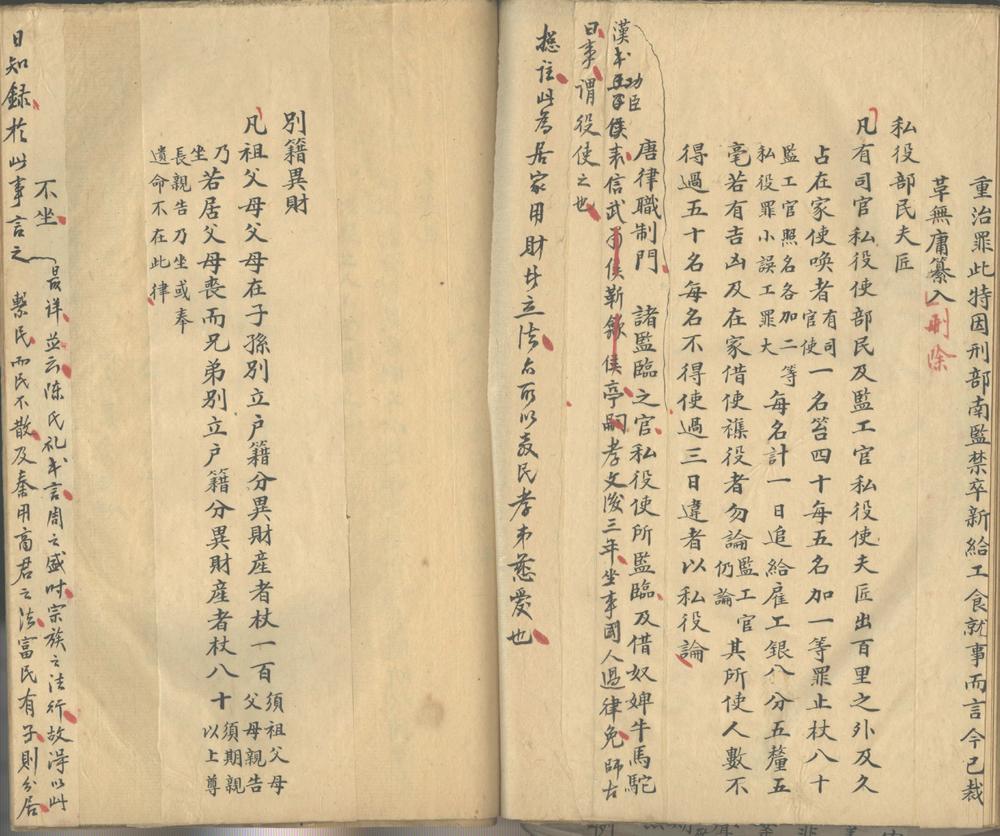 重治罪此特因刑部南監禁卒新給工食就事而言今已裁
草無庸纂入刪除
私役部民夫匠
凡有司官私役使部民及監工官私役使夫匠出百里之外及久
占在家使喚者有司官使一名笞四十每五名加一等罪止杖八十
監工官照名各加二等私役罪小誤工罪大每名計一日追給雇工銀八分五釐五
毫若有吉凶及在家借使襍役者勿論監工官仍論其所使人數不
得過五十名每名不得使過三日違者以私役論
唐律職制門 諸監臨之官私役使所監臨及借奴婢牛馬駝
漢書功臣侯表信武侯靳歙侯亭嗣孝文後三年坐事國人過律免師古
曰事謂役使之也
總註此為居家用財者立法古所以教民孝弟慈愛也
別籍異財
凡祖父母父母在子孫別立戶籍分異財產者杖一百須祖父母父母親告
乃坐若居父母喪而兄弟別立戶籍分異財產者杖八十須期親以上尊
長親告乃坐或奉遺命不在此律
不坐
日知錄於此事言之最詳並云陳氏礼書言周之盛時宗族之法行故得以此
繫民而民不散及秦用商君之法富民有子則分居